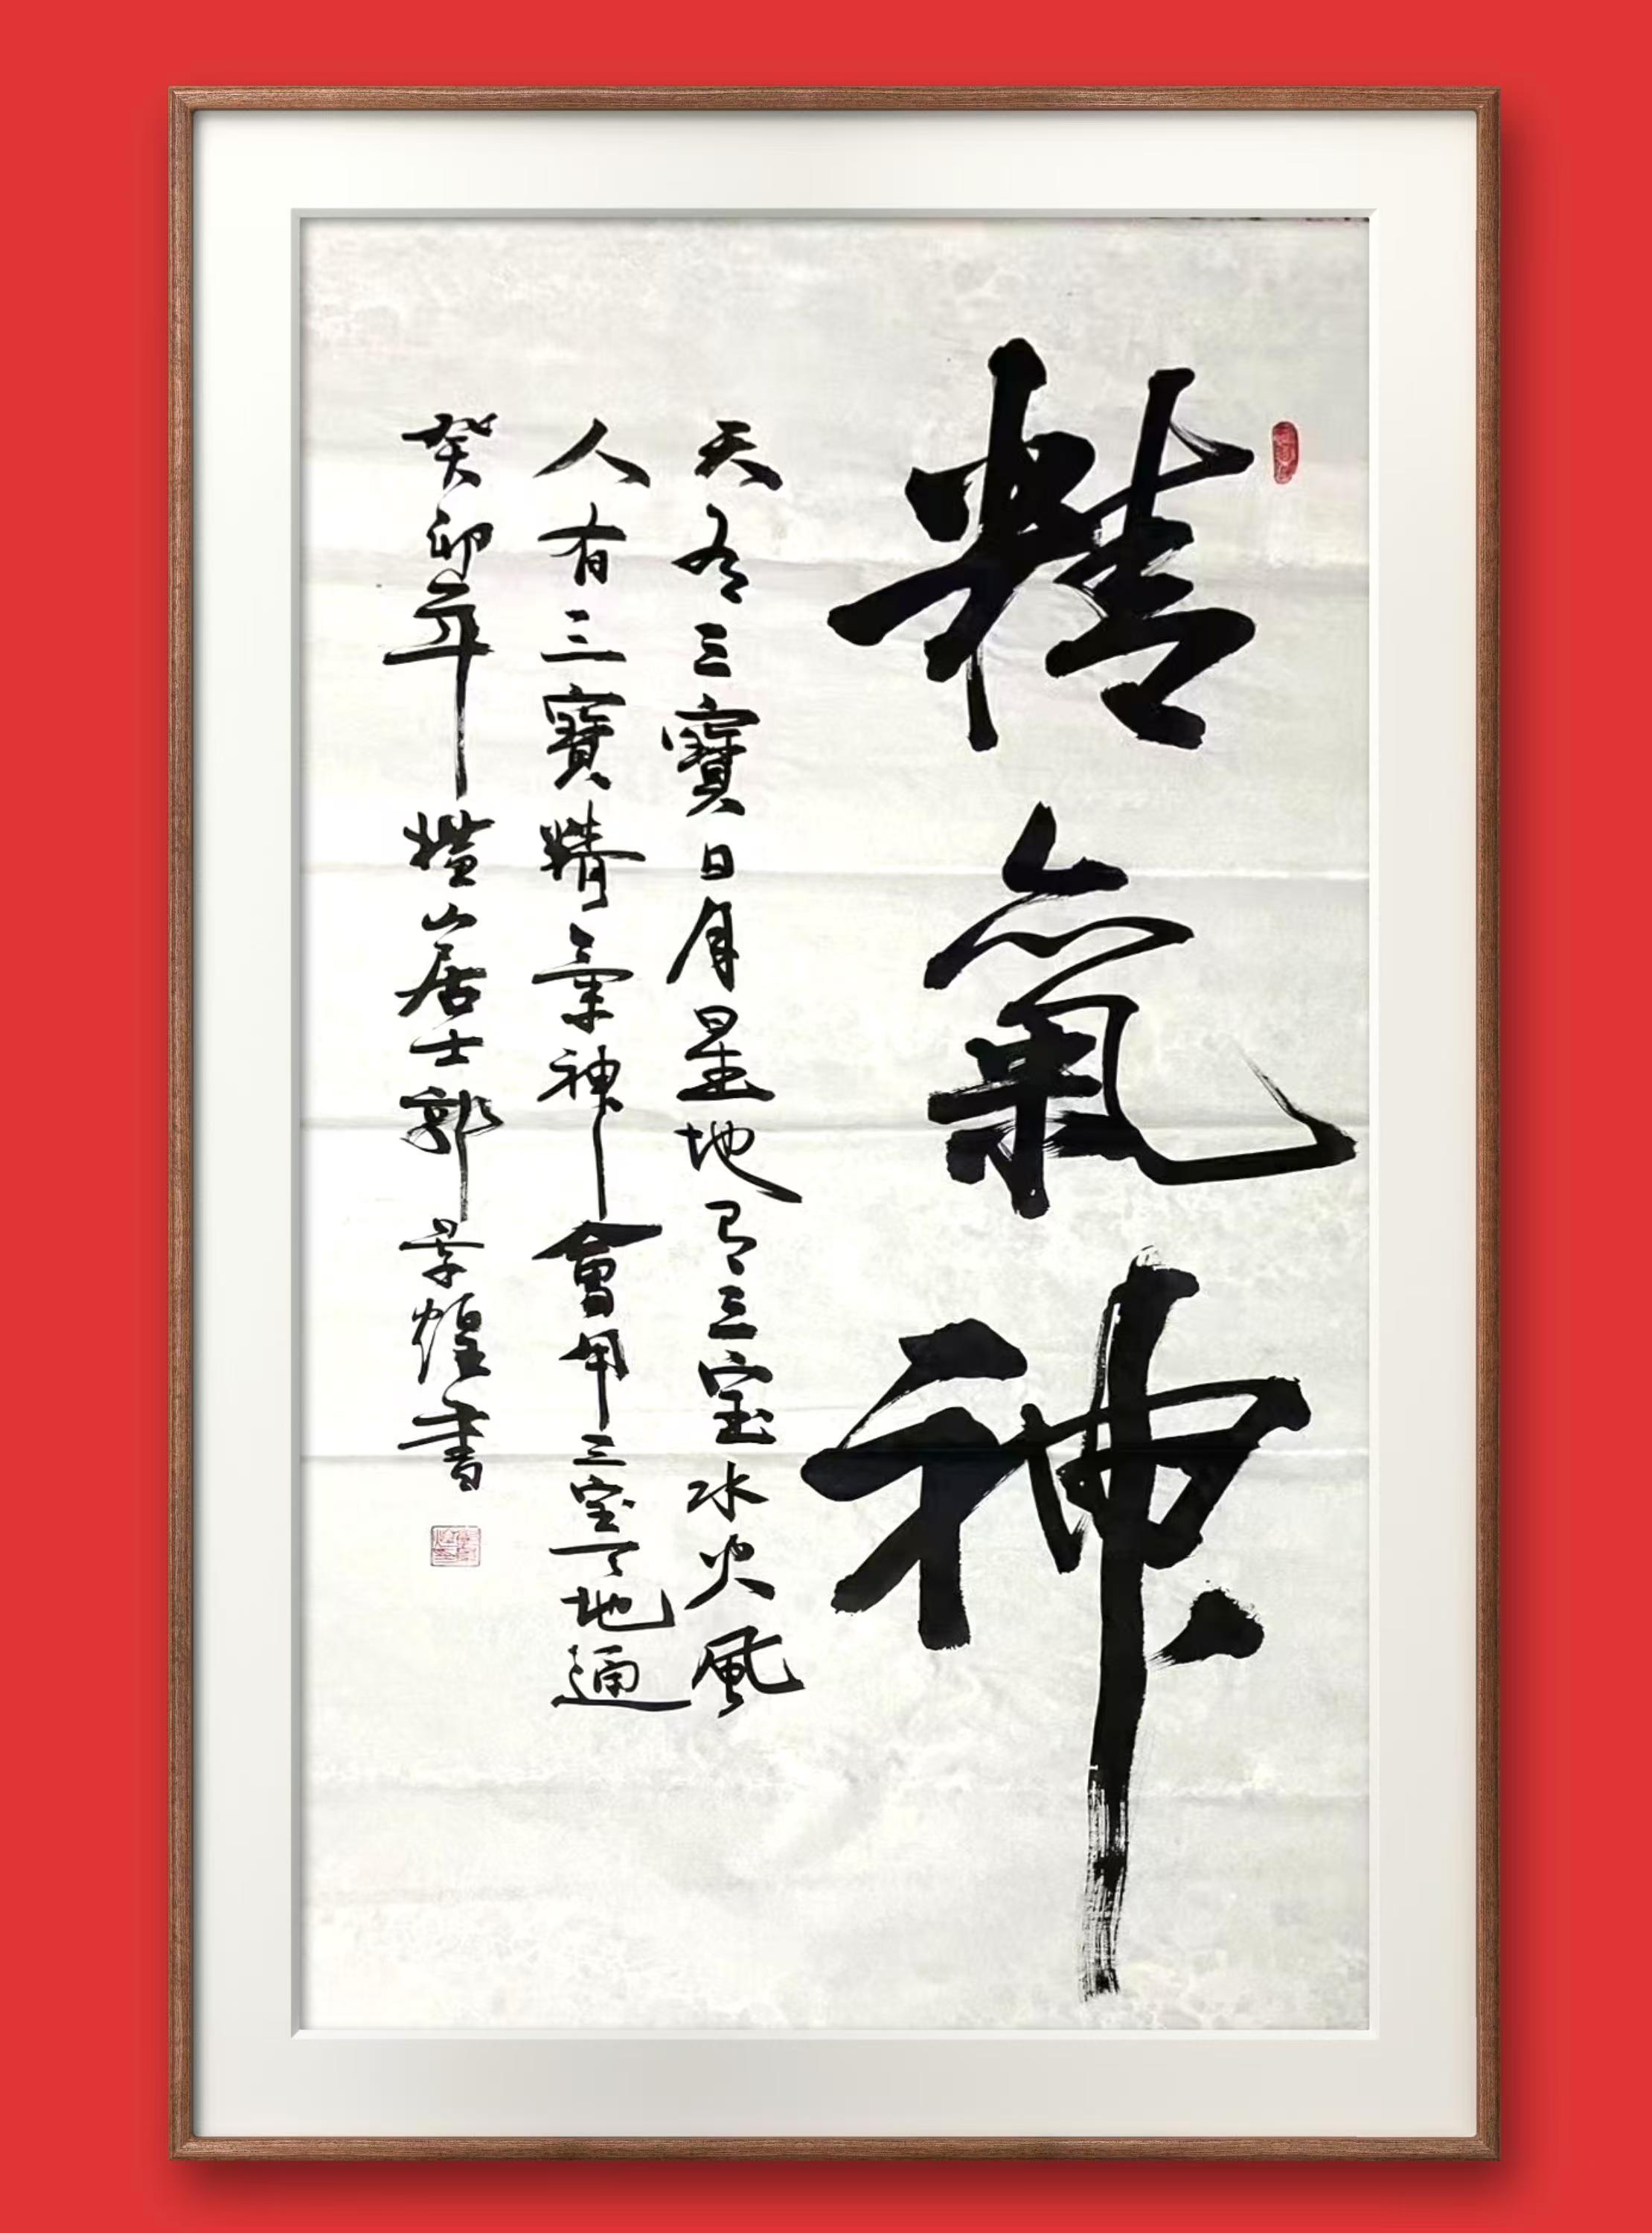 精氣神
天有三寶日月星地有三宝水火風
人有三寶精氣神會用三宝天地通
癸卯年横山居士郭景煌書